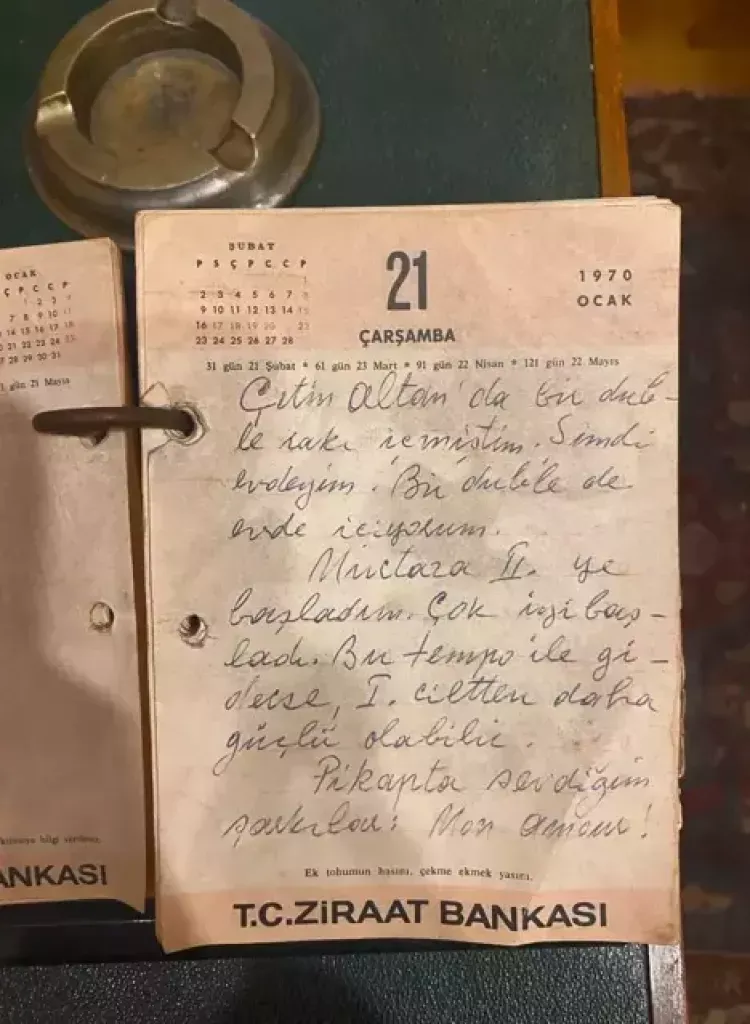 OCAK
Ç P C C P
1 2 3 4
7 8 9 10 11
27 28 29 30 31
gün 21 Mayıs
ANKASI
ŞUBAT
P S Ç P C C P
1
2 3 4 5 6 7 8
9 10 11 12 13 14 15
16 17 18 19 20 22
23 24 25 26 27 28
21
ÇARŞAMBA
1970
OCAK
31 gün 21 Şubat * 61 gün 23 Mart * 91 gün 22 Nisan * 121 gün 22 Mayıs
Çetin Altan'da bir dub-
le rakı içmiştim. Şimdi
evdeyim. Bir duble de
evde içiyorum.
Murtaza II. ye
başladım. Çok iyi baş-
ladı. Bu tempo ile gi-
derse, I. ciltten daha
güçlü olabilir.
Pikapta sevdiğim
şarkılar: Mon amour!
Ek tohumun hasını, çekme ekmek yasını.
T.C.ZİRAAT BANKASI